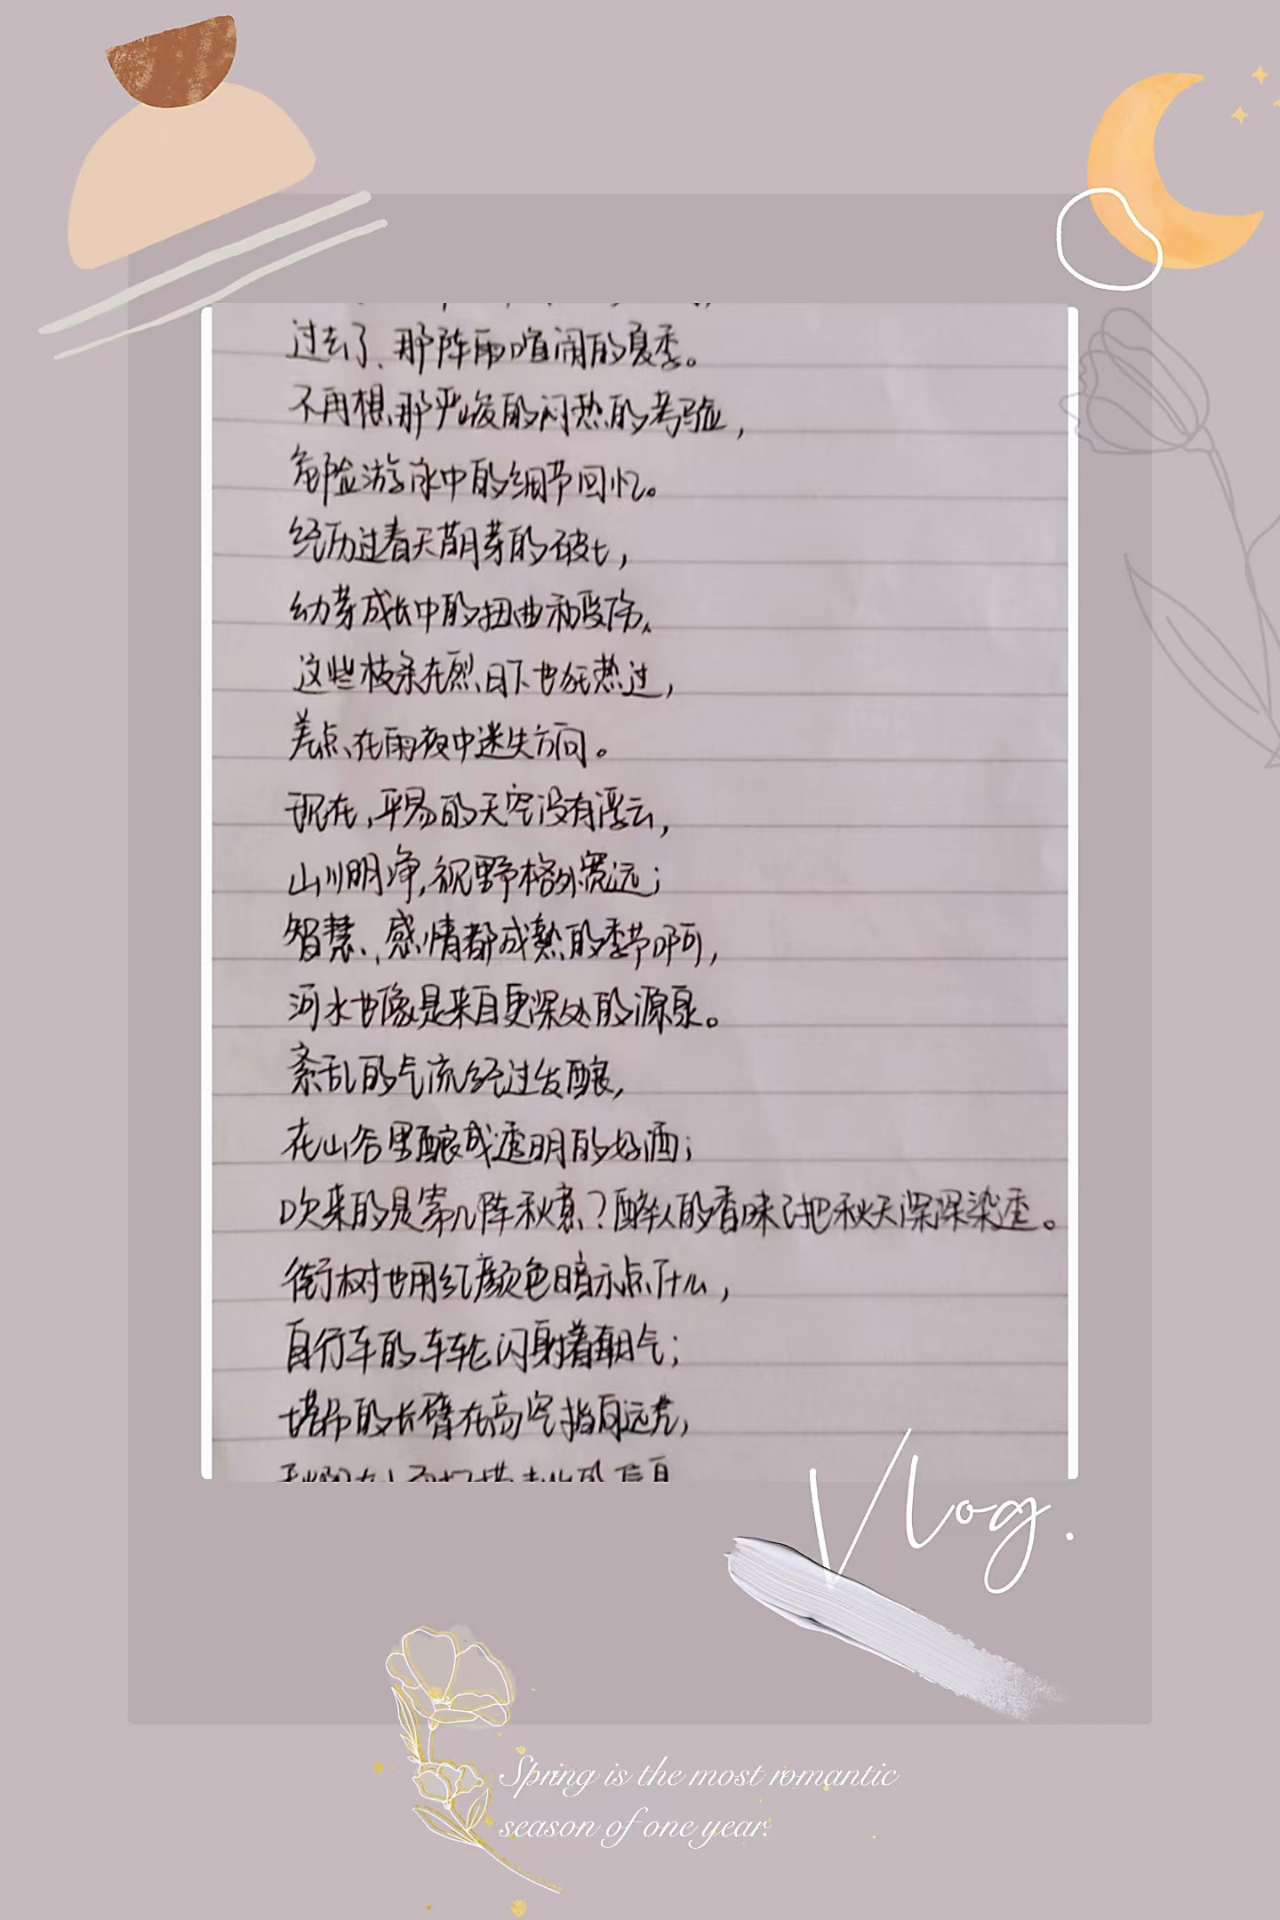 过去了，那阵雨喧闹的夏季。
不再想那严峻的闷热的考验，
危险游泳中的细节回忆。
经历过春天萌芽的破土，
幼芽成长中的扭曲和受伤，
这些枝条在烈日下也狂热过，
差点在雨夜中迷失方向。
现在，平易的天空没有浮云，
山川明净，视野格外宽远；
智慧、感情都成熟的季节啊，
河水也像是来自更深处的源泉。
紊乱的气流经过发酵，
在山谷里酿成透明的好酒；
吹来的是第几阵秋意？醉人的香味已把秋天深深染透。
街树也用红颜色暗示点什么，
自行车的车轮闪射着朝气；
塔吊的长臂在高空指向远方，
Vlog.
Spring is the most romantic
season of one year.